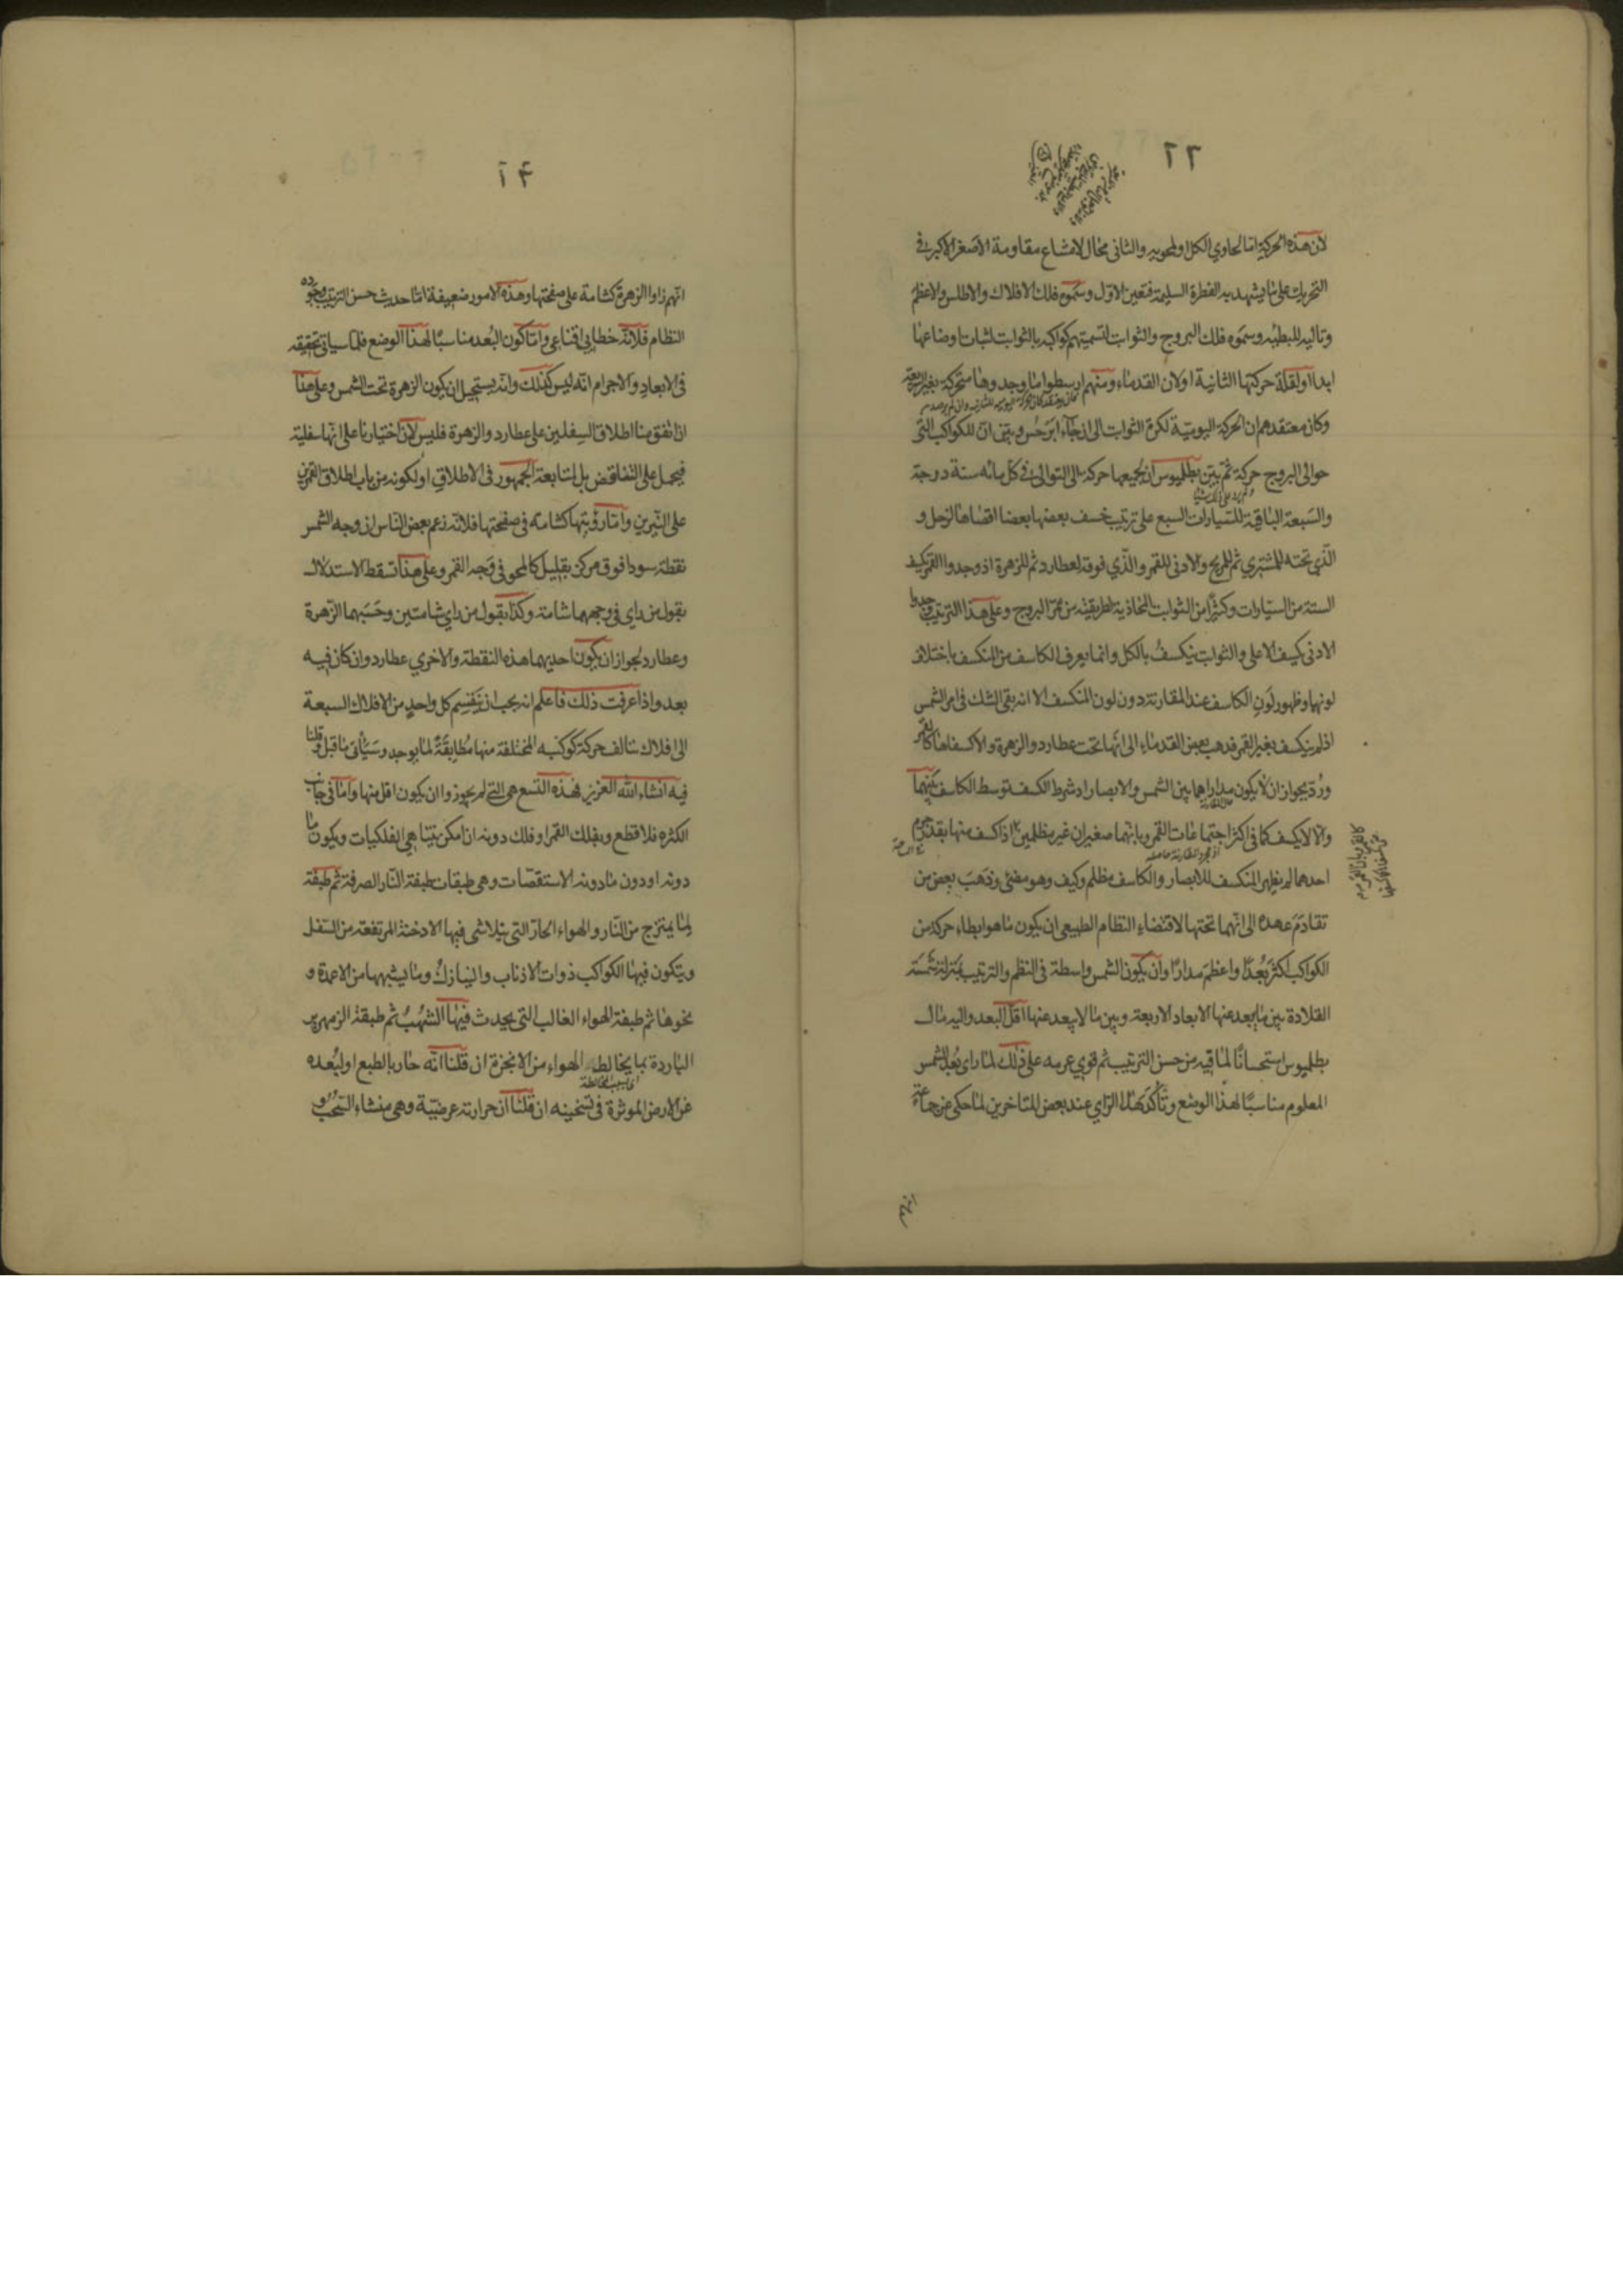 ٢٢
لان هذه الحركة اما لحاوي الكل او لمحويه والثاني محال لامتناع مقاومة الاصغر الاكبر في
التحريك على ما يشهد به الفطرة السليمة فتعين الاول وسموه فلك الافلاك والاطلس والاعظم
وتاليه للبطيئه وسموه فلك البروج والثوابت لتسميتهم كواكبه بالثوابت لثبات اوضاعها
ابدا او لقلة حركتها الثانية او لان القدماء ومنهم ارسطو ما وجدوها متحركة بغير السريعة
وكان معتقدهم ان الحركة اليومية لكرة الثوابت الى ان جاء ابرخس وبين ان للكواكب التي
حوالى البروج حركة ثم بين بطلميوس ان لجميعها حركة الى التوالى في كل مائه سنة درجة
والسبعة الباقية للسيارات السبع على ترتيب خسف بعضها بعضا اقصاها لزحل و
الذي تحته للمشتري ثم للمريخ والادنى للقمر والذي فوقه لعطارد ثم للزهرة اذ وجدوا القمر يكسف
الستة من السيارات وكثيرا من الثوابت المحاذية لطريقته من ممر البروج وعلى هذا الترتيب وجدوا
الادنى يكسف الاعلى والثوابت ينكسف بالكل وانما يعرف الكاسف من المنكسف باختلاف
لونهما وظهور لون الكاسف عند المقارنة دون لون المنكسف الا انه بقي الشك في امر الشمس
اذ لم ينكسف بغير القمر فذهب بعض القدماء الى انها تحت عطارد والزهرة والا كسفاها كالقمر
ورد بجواز ان لا يكون مداراهما بين الشمس والابصار اذ شرط الكسف توسط الكاسف بينهما
والا لا يكسف كما في اكثر اجتماعات القمر وبانهما صغيران غير مظلمين اذا كسف منها بقدر جرم
احدهما لم يظهر المنكسف للابصار والكاسف مظلم وكيف وهو مضئ وذهب بعض من
تقادم عهده الى انهما تحتها لاقتضاء النظام الطبيعي ان يكون ما هو ابطاء حركة من
الكواكب اكثر بعدا واعظم مدارا وان يكون الشمس واسطة في النظم والترتيب بمنزلة شمسة
القلادة بين ما يبعد عنها الابعاد الاربعة وبين ما لا يبعد عنها اقل البعد واليه مال
بطلميوس استحسانا لما فيه من حسن الترتيب ثم قوي عزمه على ذلك لما راى بعد الشمس
المعلوم مناسبا لهذا الوضع وتأكد هذا الراي عند بعض المتاخرين لما حكى عن جماعة
انهم
٢٤
انهم راوا الزهرة كشامة على صفحتها وهذه الامور ضعيفة اما حديث حسن الترتيب وجوده
النظام فلانه خطابي اقناعي واما كون البعد مناسبا لهذا الوضع فلما سياتي تحقيقه
في الابعاد والاجرام انه ليس كذلك وانه يستحيل ان يكون الزهرة تحت الشمس وعلى هذا
ان اتفق منا اطلاق السفلين على عطارد والزهرة فليس لان اختيارنا على انها سفلية
فيحمل على التناقض بل لمتابعة الجمهور في الاطلاق او لكونه من باب اطلاق القمرين
على النيرين واما رؤيتها كشامة في صفحتها فلانه زعم بعض الناس ان في وجه الشمس
نقطة سودا فوق مركزه بقليل كالمحو في وجه القمر وعلى هذا تسقط الاستدلال
بقول من راي في وجهها شامة وكذا بقول من راي شامتين وحسبهما الزهرة
وعطارد لجواز ان يكون احديهما هذه النقطة والاخري عطارد وان كان فيه
بعد واذا عرفت ذلك فاعلم انه يجب ان ينقسم كل واحد من الافلاك السبعة
الى افلاك تتالف حركة كوكبه المختلفة منها مطابقة لما يوجد وسيأتي ما قيل وقلنا
فيه انشاء الله العزيز فهذه التسع هي التي لم يجوزوا ان يكون اقل منها واما في جانب
الكثره فلا قطع وبفلك القمر او فلك دونه ان امكن يتناهي الفلكيات ويكون ما
دونه او دون ما دونه الاستقصات وهي طبقات طبقة النار الصرفة ثم طبقة
لما يمتزج من النار والهواء الحار التي يتلاشي فيها الادخنة المرتفعة من السفل
ويتكون فيها الكواكب ذوات الاذناب والنيازك وما يشبهها من الاعمدة و
نحوها ثم طبقة الهواء الغالب التي يحدث فيها الشهب ثم طبقة الزمهرير
الباردة بما يخالط الهواء من الابخرة ان قلنا انه حار بالطبع او لبعده
اي بسبب المخالطة
عن الارض الموثرة في تسخينه ان قلنا ان حرارته عرضية وهي منشاء السحب و